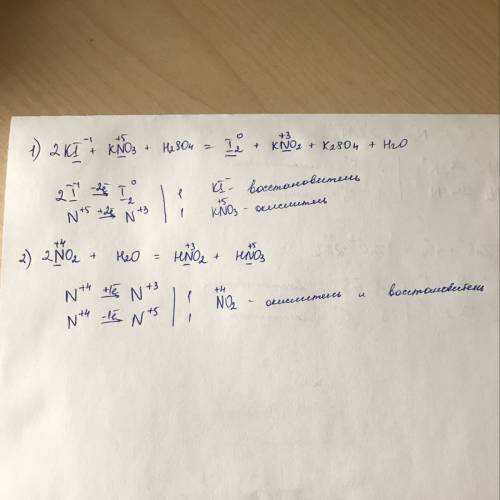 1) 2KI⁻¹ + KN⁺⁵O₃ + H₂SO₄ = I₂⁰ + KN⁺³O₂ + K₂SO₄ + H₂O
2I⁻¹ -2e̅→ I₂⁰ | 1 KI⁻ - восстановитель
N⁺⁵ +2e̅→ N⁺³ | 1 KN⁺⁵O₃ - окислитель
2) 2N⁺⁴O₂ + H₂O = HN⁺³O₂ + HN⁺⁵O₃
N⁺⁴ +1e̅→ N⁺³ | 1 N⁺⁴O₂ - окислитель и восстановитель
N⁺⁴ -1e̅→ N⁺⁵ | 1